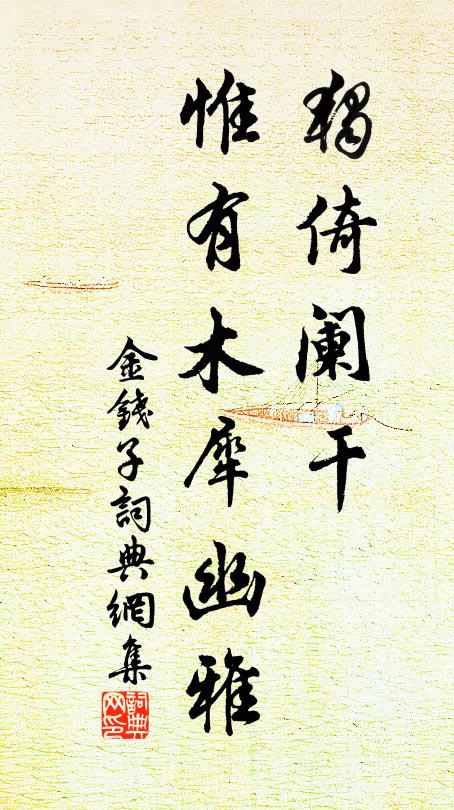 獨倚阑干
惟有木犀幽雅
金錢子詞典網集
詞典网印